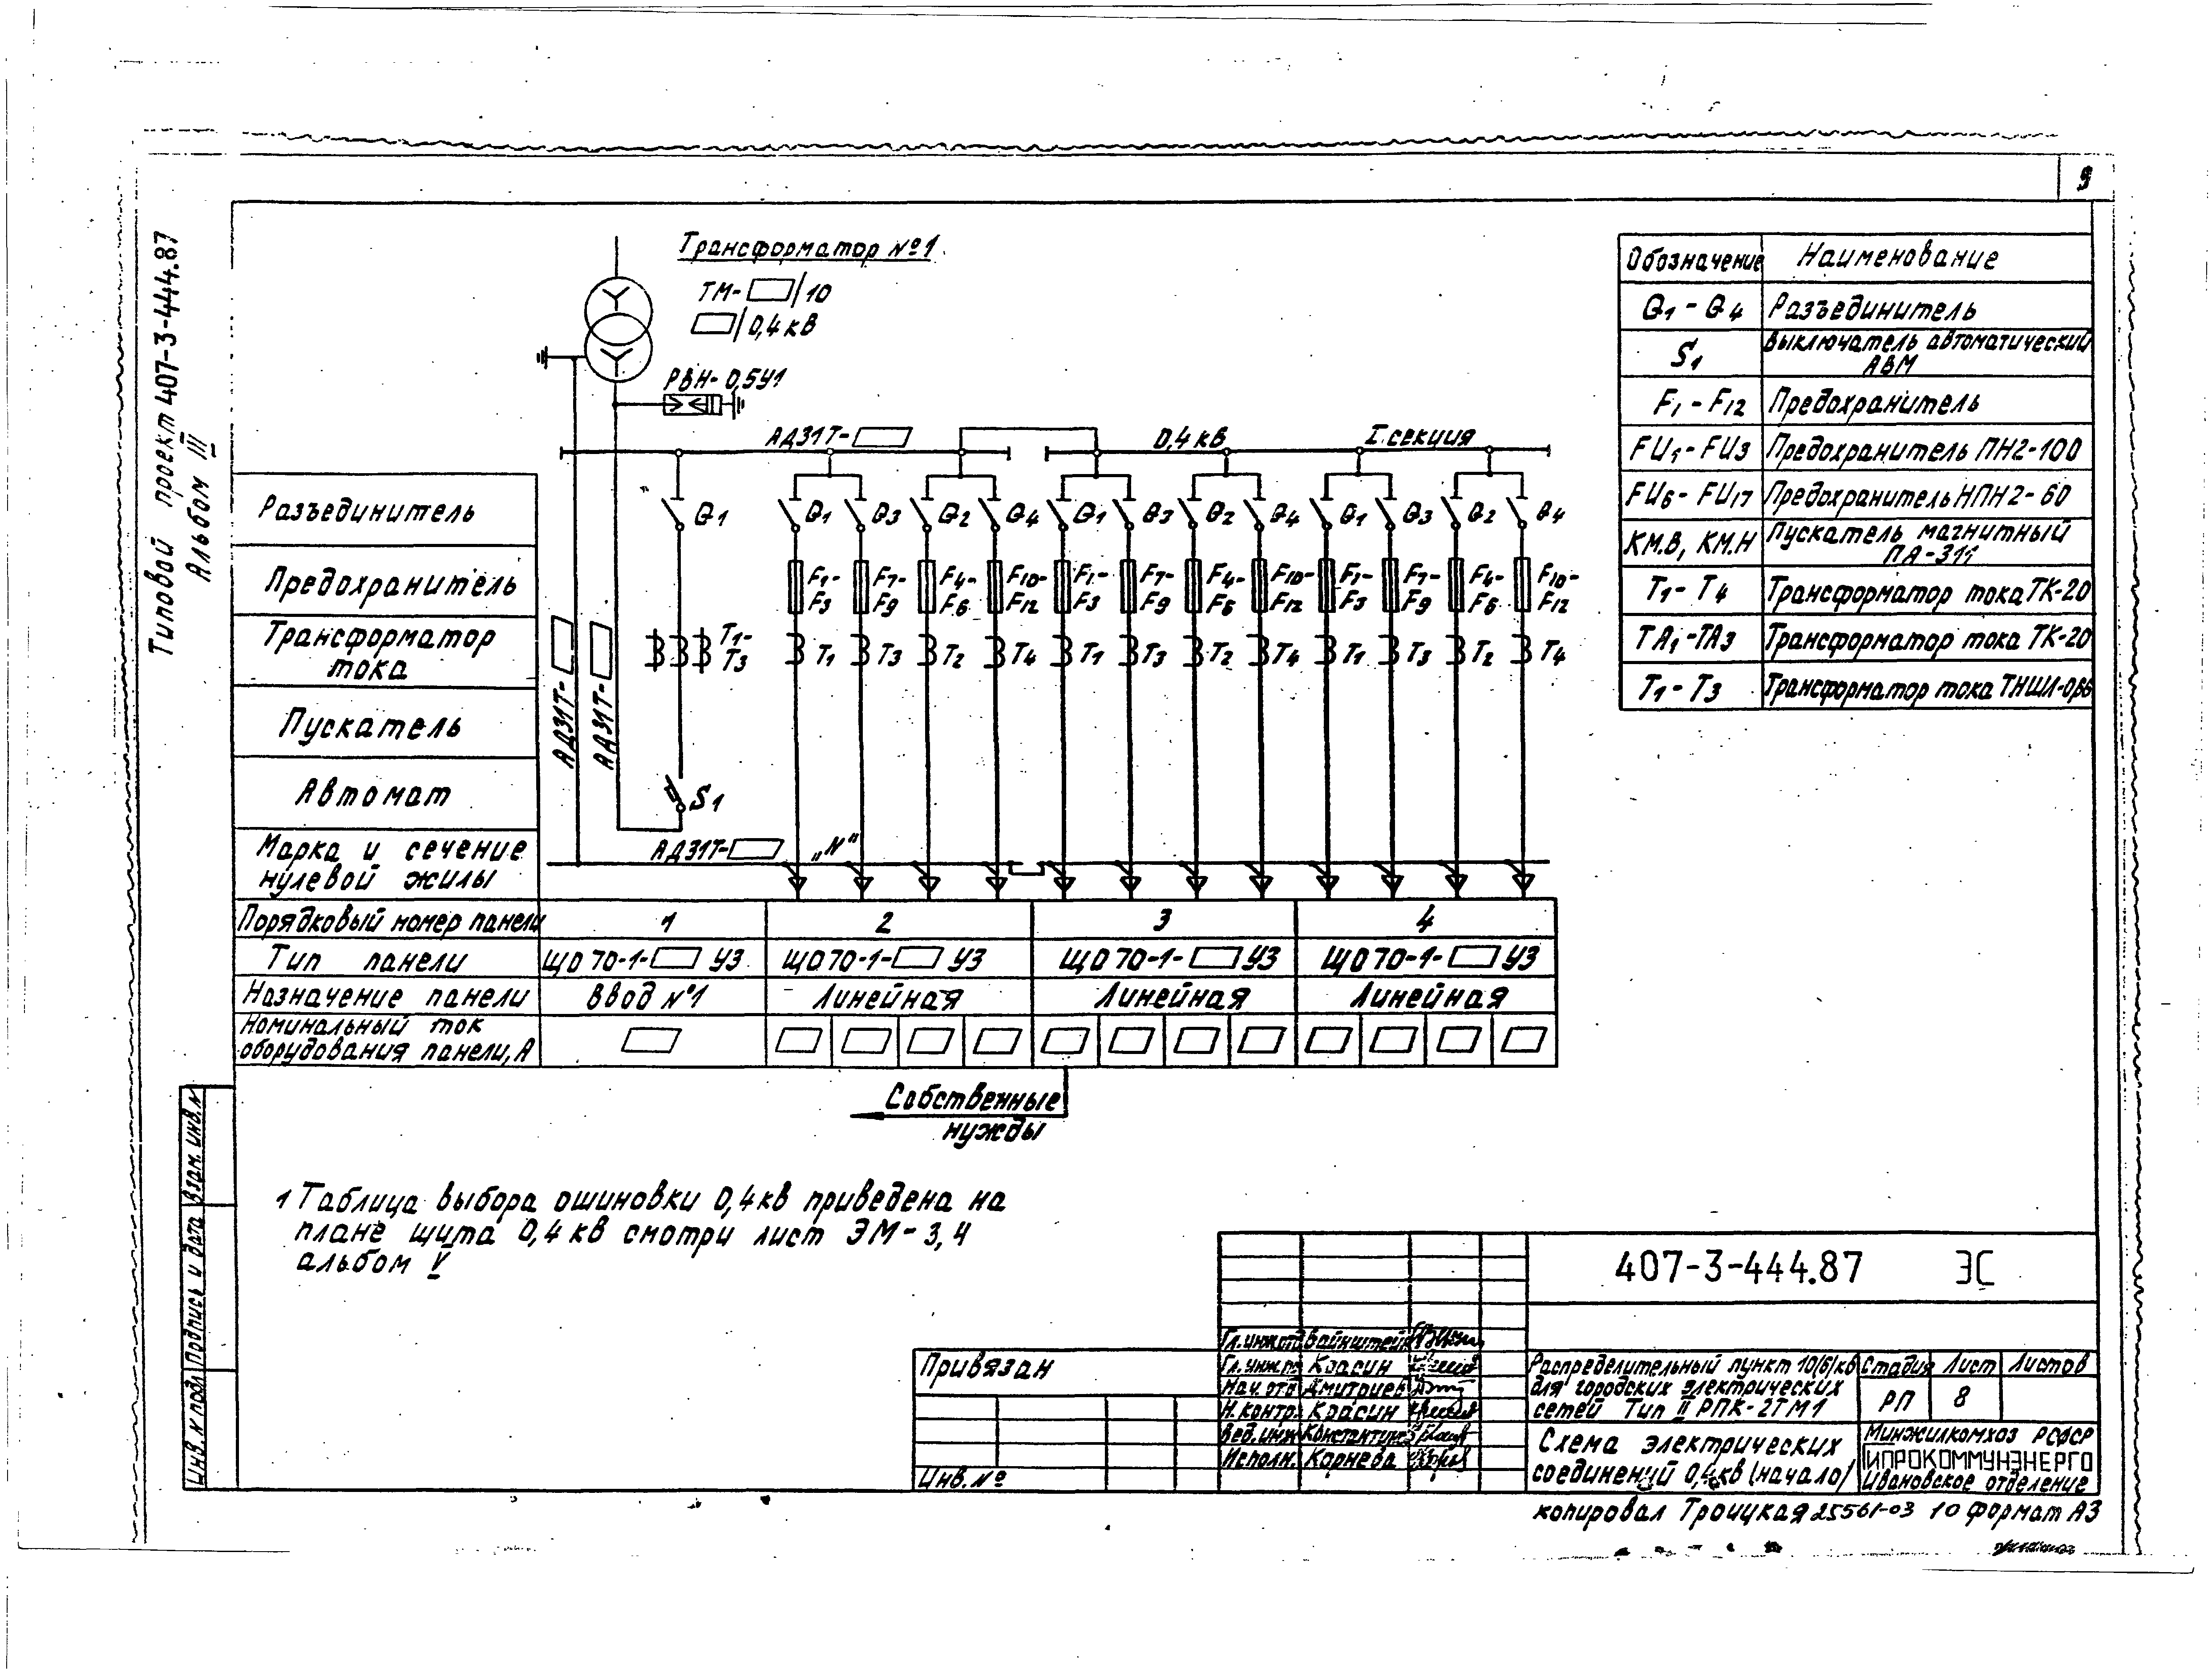 9
Типовой проект 407-3-444.87
Альбом III
Трансформатор №1
ТМ-▱/10
▱/0,4кв
РВН-0,5У1
АД31Т-▱
0,4кв
I секция
Q1
Q1 Q3 Q2 Q4 Q1 Q3 Q2 Q4 Q1 Q3 Q2 Q4
F1-F3 F7-F9 F4-F6 F10-F12 F1-F3 F7-F9 F4-F6 F10-F12 F1-F3 F7-F9 F4-F6 F10-F12
T1-T3
T1 T3 T2 T4 T1 T3 T2 T4 T1 T3 T2 T4
АД31Т-▱
АД31Т-▱
S1
АД31Т-▱ „N“
Разъединитель
Предохранитель
Трансформатор
тока
Пускатель
Автомат
Марка и сечение
нулевой жилы
Порядковый номер панели 1 2 3 4
Тип панели ЩО70-1-▱У3 ЩО70-1-▱У3 ЩО70-1-▱У3 ЩО70-1-▱У3
Назначение панели Ввод №1 Линейная Линейная Линейная
Номинальный ток
оборудования панели, А
Собственные
нужды
Обозначение Наименование
Q1-Q4 Разъединитель
S1 Выключатель автоматический
АВМ
F1-F12 Предохранитель
FU1-FU3 Предохранитель ПН2-100
FU6-FU17 Предохранитель НПН2-60
КМ.В, КМ.Н Пускатель магнитный
ПА-311
T1-T4 Трансформатор тока ТК-20
TA1-TA3 Трансформатор тока ТК-20
T1-T3 Трансформатор тока ТНШЛ-0,66
1 Таблица выбора ошиновки 0,4кв приведена на
плане щита 0,4кв смотри лист ЭМ-3,4
альбом V
Инв. N подл Подпись и дата Взам. инв. N
Привязан
Инв. №
Гл.инж.отд Вайнштейн
Гл.инж.п Красин
Нач. отд Дмитриев
Н. контр. Красин
Вед. инж
Исполн. Корнева
407-3-444.87 ЭС
Распределительный пункт 10(6)кв
для городских электрических
сетей Тип II РПК-2ТМ1
Стадия Лист Листов
РП 8
Схема электрических
соединений 0,4кв (начало)
Минжилкомхоз РСФСР
ГИПРОКОММУНЭНЕРГО
Ивановское отделение
копировал Троицкая 25561-03 10 формат А3